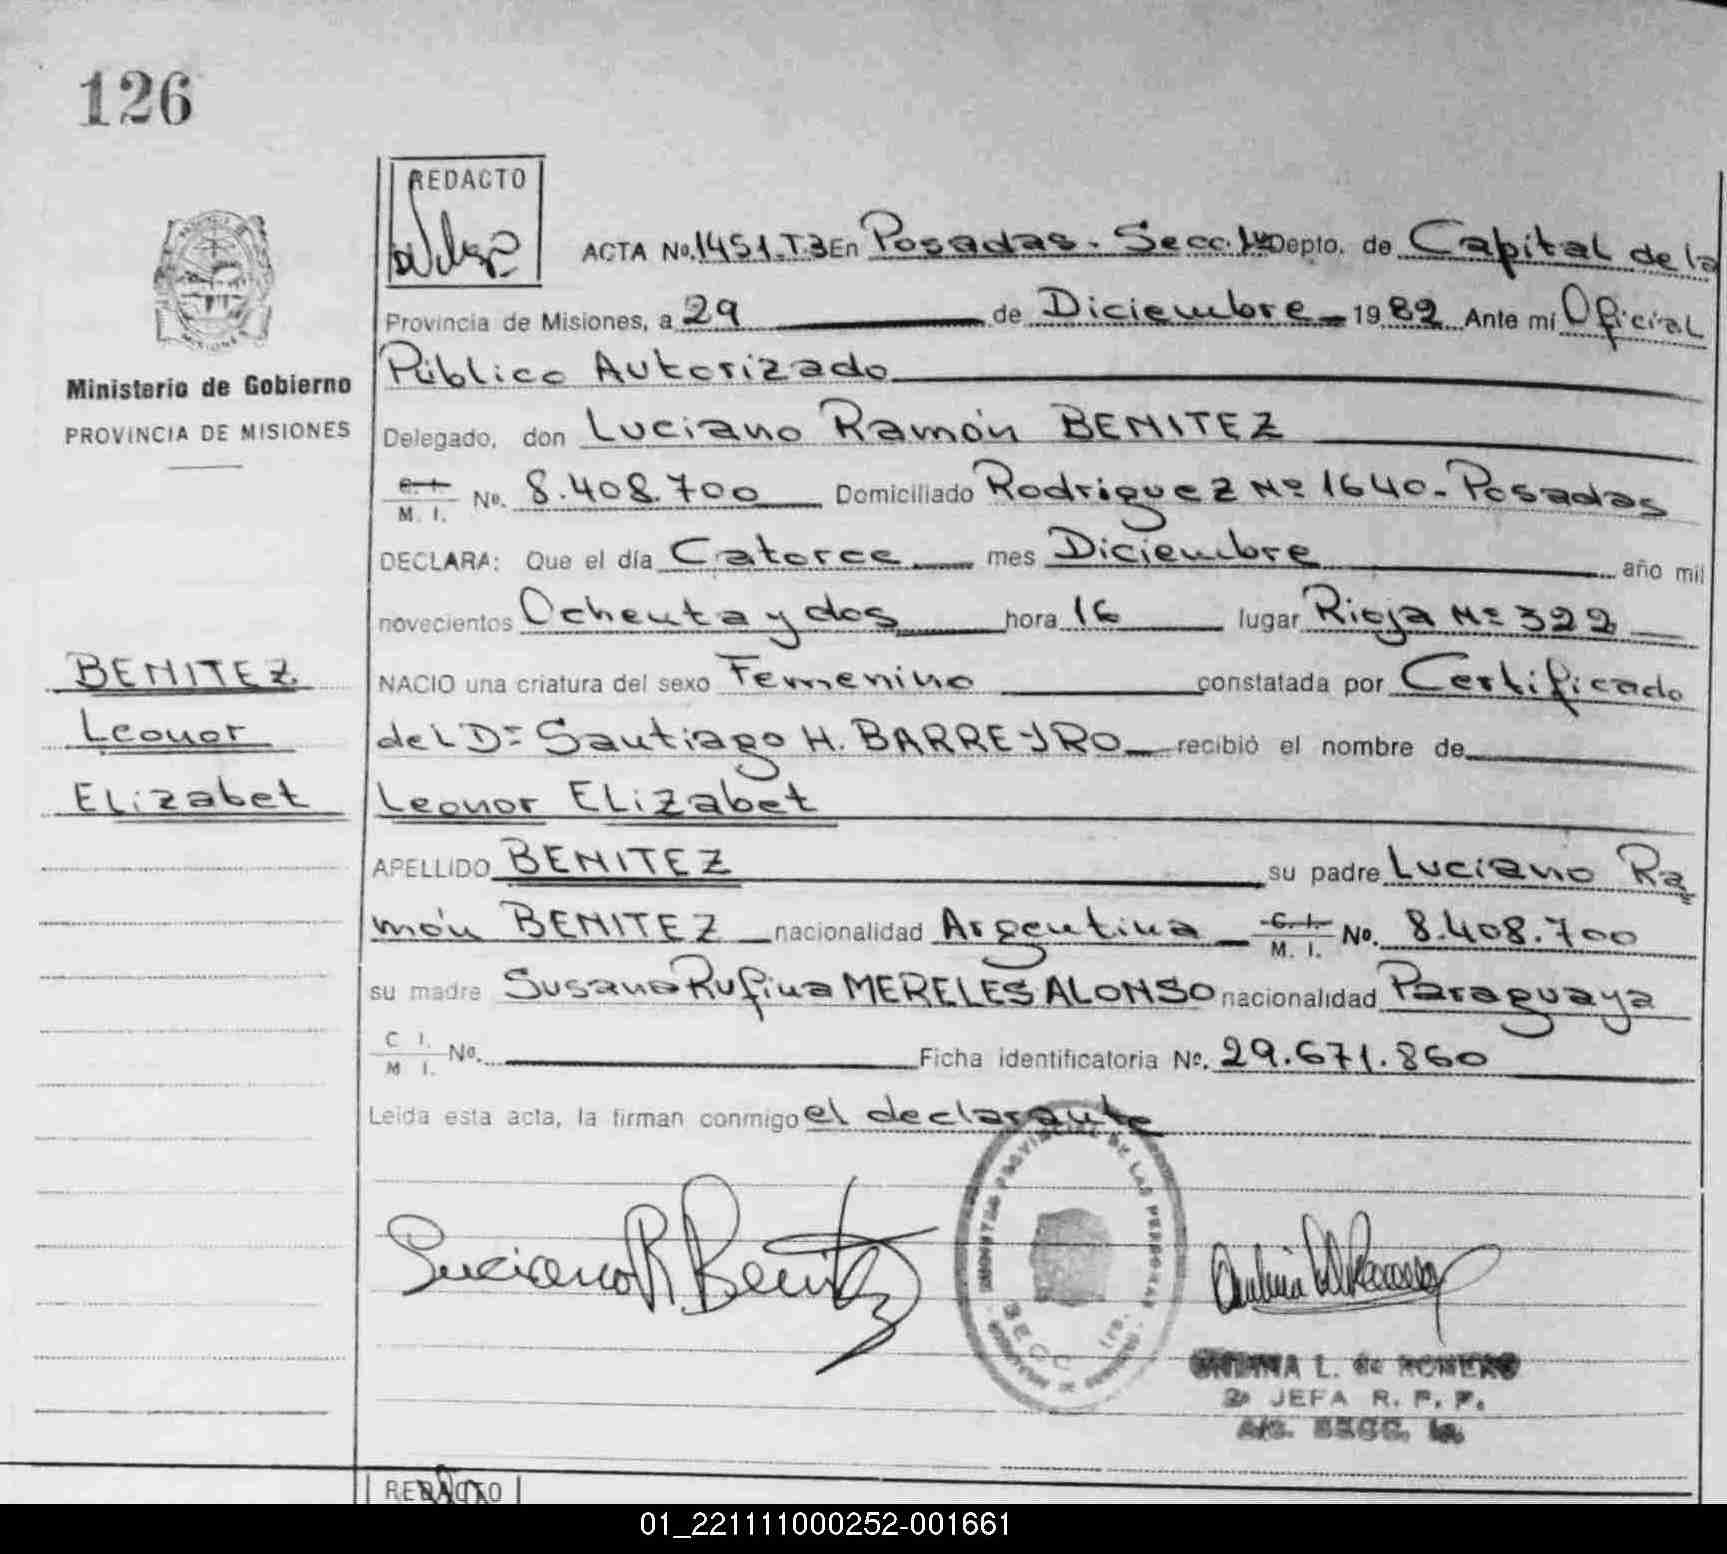 126
REDACTO
ACTA No. 1451.T.3 En Posadas - Secc. 1ª Depto. de Capital de la
Provincia de Misiones, a 29 de Diciembre 1982 Ante mí Oficial
Público Autorizado
Ministerio de Gobierno
PROVINCIA DE MISIONES
Delegado, don Luciano Ramón BENITEZ
C. I. M. I. No. 8.408.700 Domiciliado Rodriguez Nº 1640 - Posadas
DECLARA: Que el día Catorce mes Diciembre año mil
novecientos Ochenta y dos hora 16 lugar Rioja Nº 322
BENITEZ
Leonor
Elizabet
NACIO una criatura del sexo Femenino constatada por Certificado
del Dr Santiago H. BARREYRO recibió el nombre de
Leonor Elizabet
APELLIDO BENITEZ su padre Luciano Ra=
món BENITEZ nacionalidad Argentina C. I. M. I. No. 8.408.700
su madre Susana Rufina MERELES ALONSO nacionalidad Paraguaya
C I. M I. No. Ficha identificatoria No. 29.671.860
Leída esta acta, la firman conmigo el declarante
Luciano R Benitez
REGISTRO PROVINCIAL DE LAS PERSONAS
SECC 1ra.
ONDINA L. de ROMERO
2a JEFA R. P. P.
A/C. SECC. 1a.
REDACTO
01_221111000252-001661